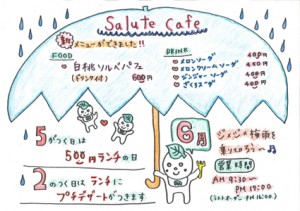 Salute Cafe
新メニューができました!!
FOOD
白桃ソルベパフェ
(ドリンク付)
600円
DRINK
メロンソーダ 400円
メロンクリームソーダ 450円
ジンジャーソーダ 400円
ざくろソーダ
5がつく日は
500円ランチの日
2のつく日はランチに
プチデザートがつきます
6月
ジメジメの梅雨を
乗りきろう〜♪
営業時間
AM 9:30〜
PM 17:00
(ラストオーダー PM 16:00)